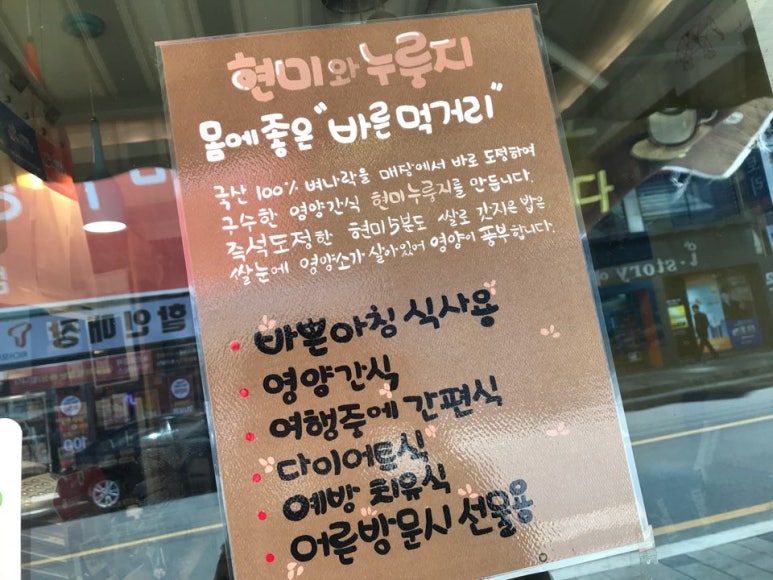 현미와 누룽지
몸에 좋은 "바른 먹거리"
국산 100% 벼나락을 매장에서 바로 도정하여
구수한 영양간식 현미누룽지를 만듭니다.
즉석도정한 현미5분도 쌀로 갓지은 밥은
쌀눈에 영양소가 살아있어 영양이 풍부합니다.
• 바쁜아침 식사용
• 영양간식
• 여행중에 간편식
• 다이어트식
• 예방 치유식
• 어른방문시 선물용
할인매장
i-story
다